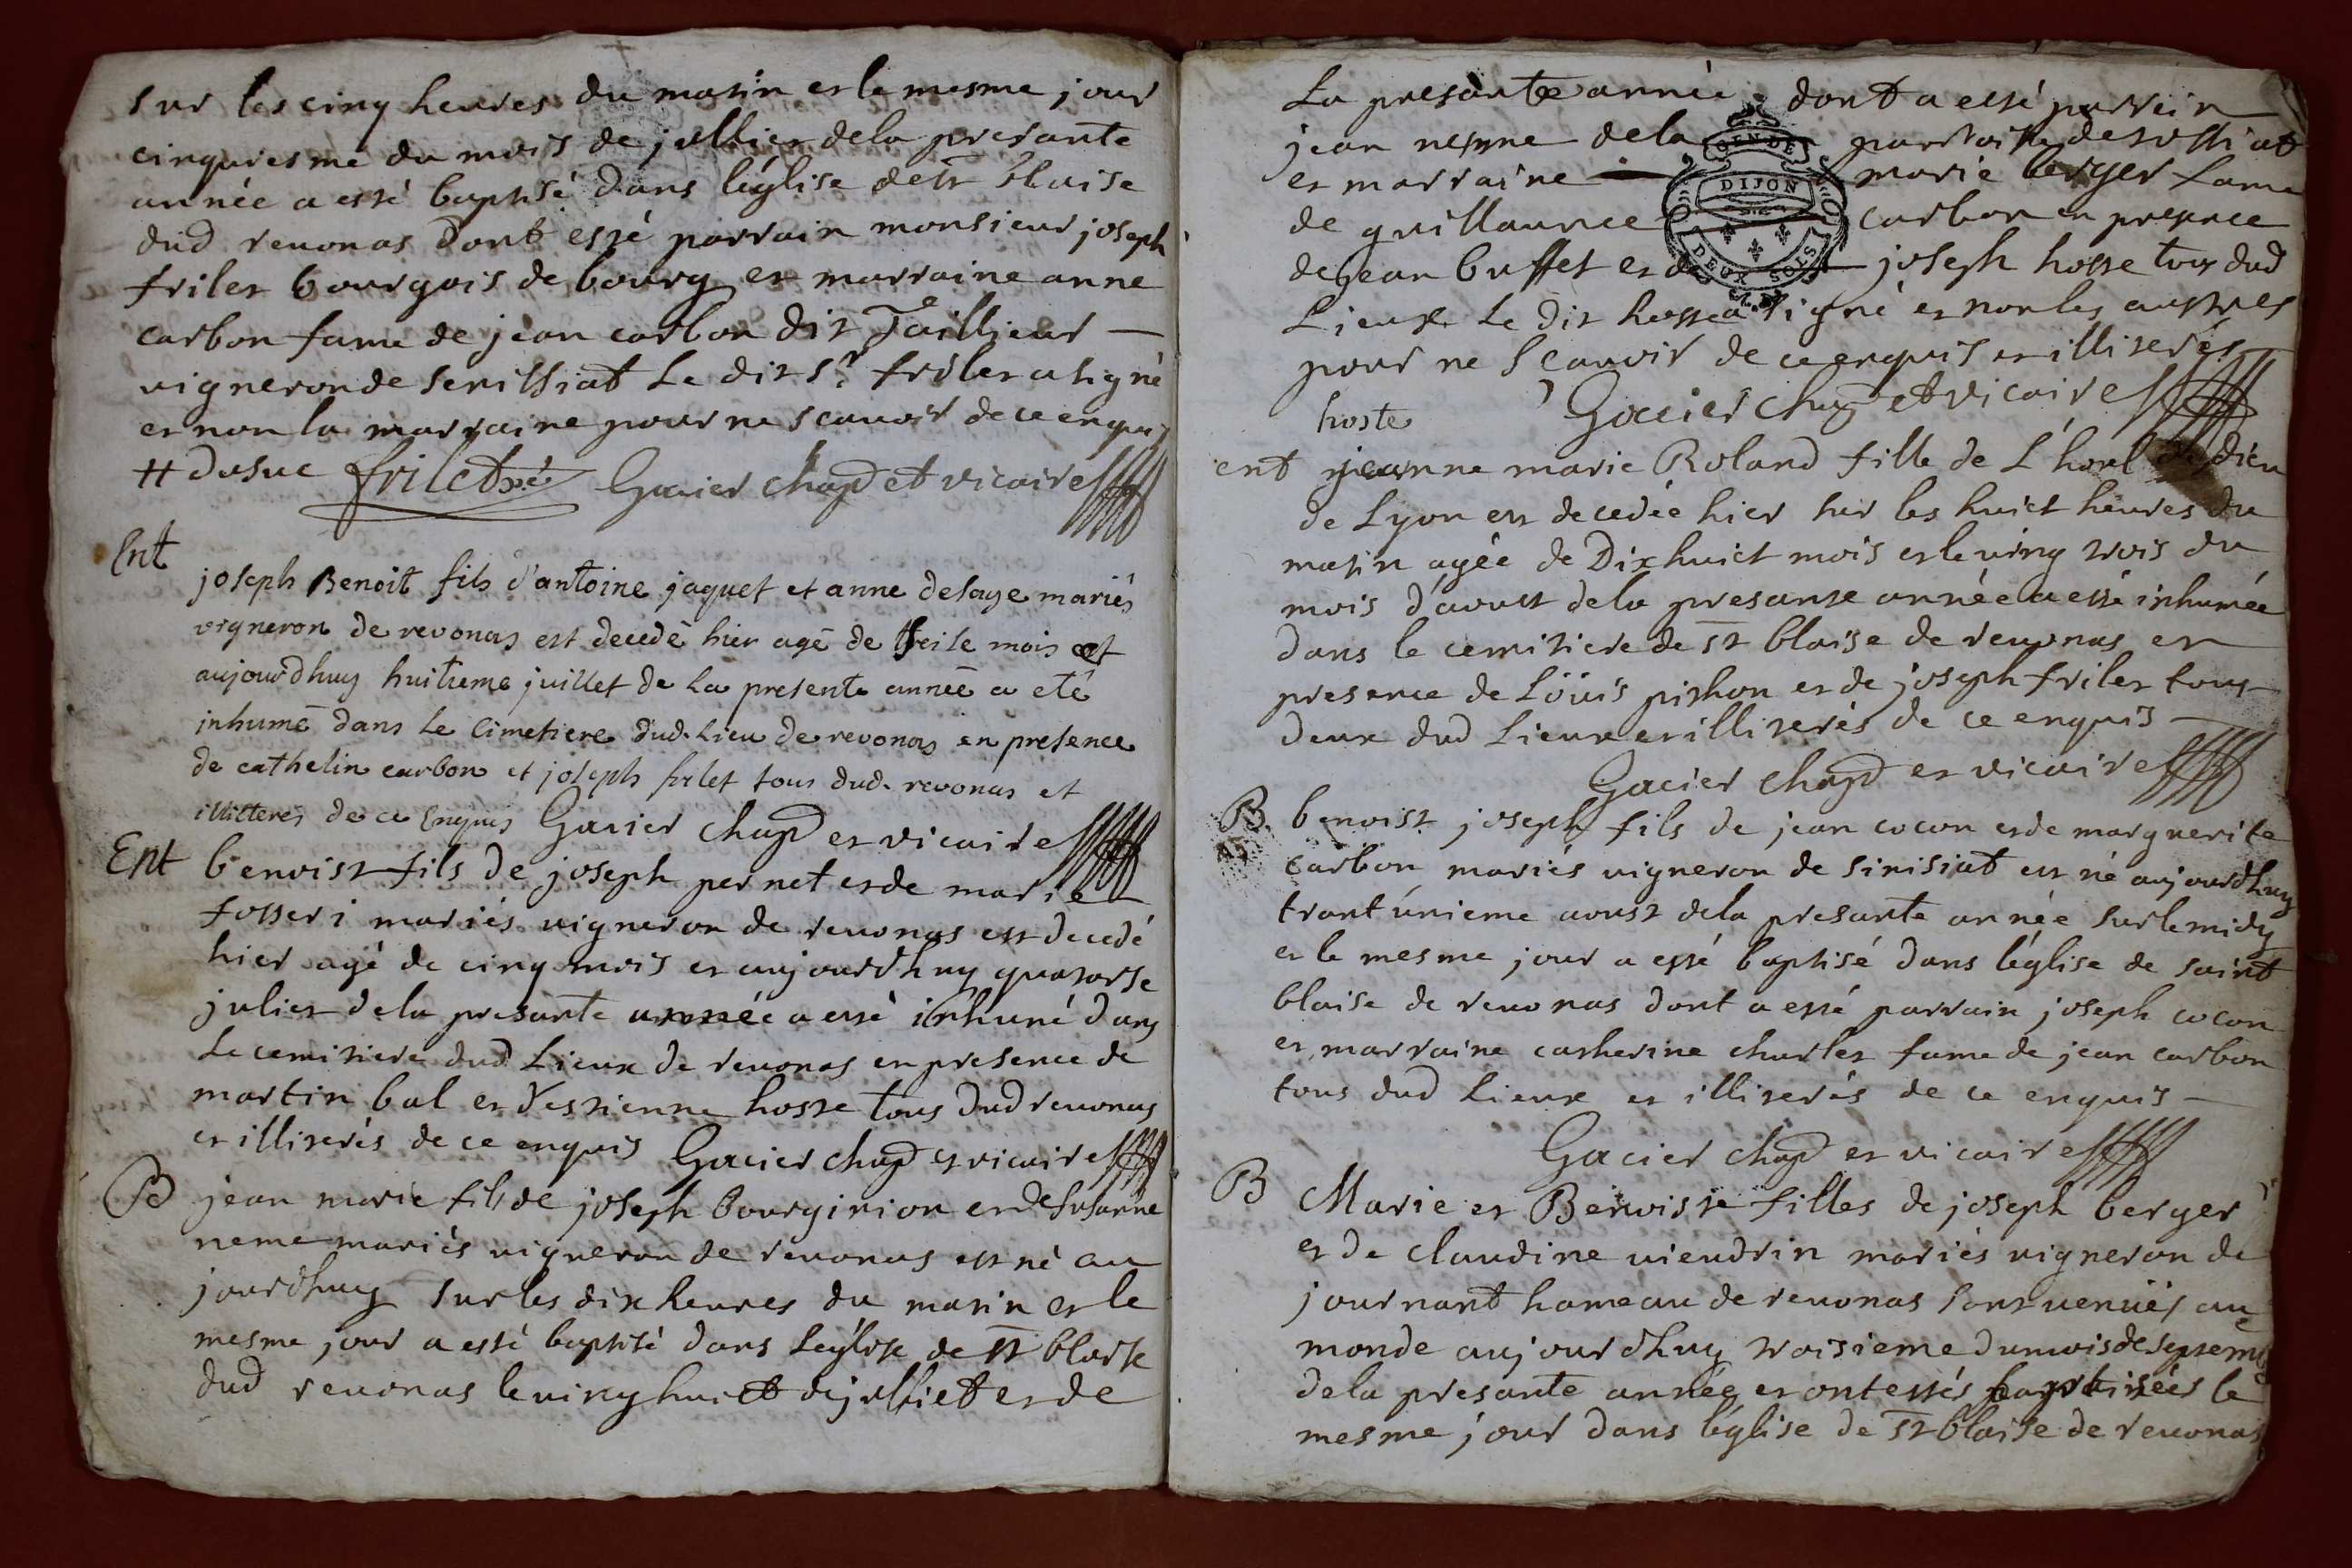 sur les cinq heures du matin et le mesme jour
cinquiesme du mois de jullier de la presante
année a esté baptisé dans l'église de st blaise
dud revonas dont esté parrain monsieur joseph
frilet bourgois de bourg et marraine anne
carbon fame de jean carbon dit Tailljeur
vigneron de senissiat Le dit sr frilet a signé
et non la marraine pour ne scavoir de ce enquis
frilet Gacier chap et vicaire
Ent
joseph Benoit fils d'antoine jaquet et anne desaye mariés
vigneron de revonas est decedé hier agé de treise mois et
aujourdhuy huitieme juillet de la presente année a eté
inhumé dans Le Cimetiere dud. Lieu de revonas en presence
de cathelin carbon et joseph frilet tous dud. revonas et
illitterés de ce Enquis Gacier chap et vicaire
Ent benoist fils de joseph pernet et de marie
fosseri mariés vigneron de revonas est decedé
hier agé de cinq mois et aujourdhuy quatorse
julier de la presante année a esté inhumé dans
Le cemitiere dud Lieux de revonas en presence de
martin bal et d'estienne hoste tous dud revonas
et illiterés de ce enquis Gacier chap et vicaire
B jean marie fils de joseph bourginion et de susanne
neme mariés vigneron de revonas est né au
jourdhuy sur les dix heures du matin et le
mesme jour a esté baptisé dans L'église de st blaise
dud revonas le vinghuict de julliet et de
La presante année dont a esté parrein
jean neyme de la parroisse de
et marraine marie berger fame
de guillaume carbon en presence
de jean buffet et de joseph hosse tous dud
Lieux Le dit hosse a signé et non les austres
pour ne scauvoir de ce enquis et illiserés
hoste Gacier chap et vicaire
ent jeanne marie Roland fille de L'hotel dieu
de Lyon est decedée hier sur les huict heures du
matin agée de Dixhuict mois et le ving trois du
mois d'avoust de la presante année a esté inhumée
dans le cemitiere de st blaise de revonas en
presence de Loüis pichon et de joseph frilet tous
deux dud Lieux et illiserés de ce enquis
Gacier chap et vicaire
B benoist joseph fils de jean cocon et de marguerite
carbon mariés vigneron de sinisiat est né aujourdhuy
trant únieme aoust de la presante année sur le midy
et le mesme jour a esté baptisé dans l'église de saint
blaise de revonas dont a esté parrain joseph cocon
et marraine catherine charles fame de jean carbon
tous dud Lieux et illiterés de ce enquis
Gacier chap et vicaire
B Marie et Benoiste filles de joseph berger
et de claudine viendrin mariés vigneron de
journant hameau de revonas sont venües au
monde aujourdhuy troisieme du mois de septemb
de la presante année et ont estés baptisées le
mesme jour dans l'église de st blaise de revonas
GEN DE
DIJON
DEUX SOLS